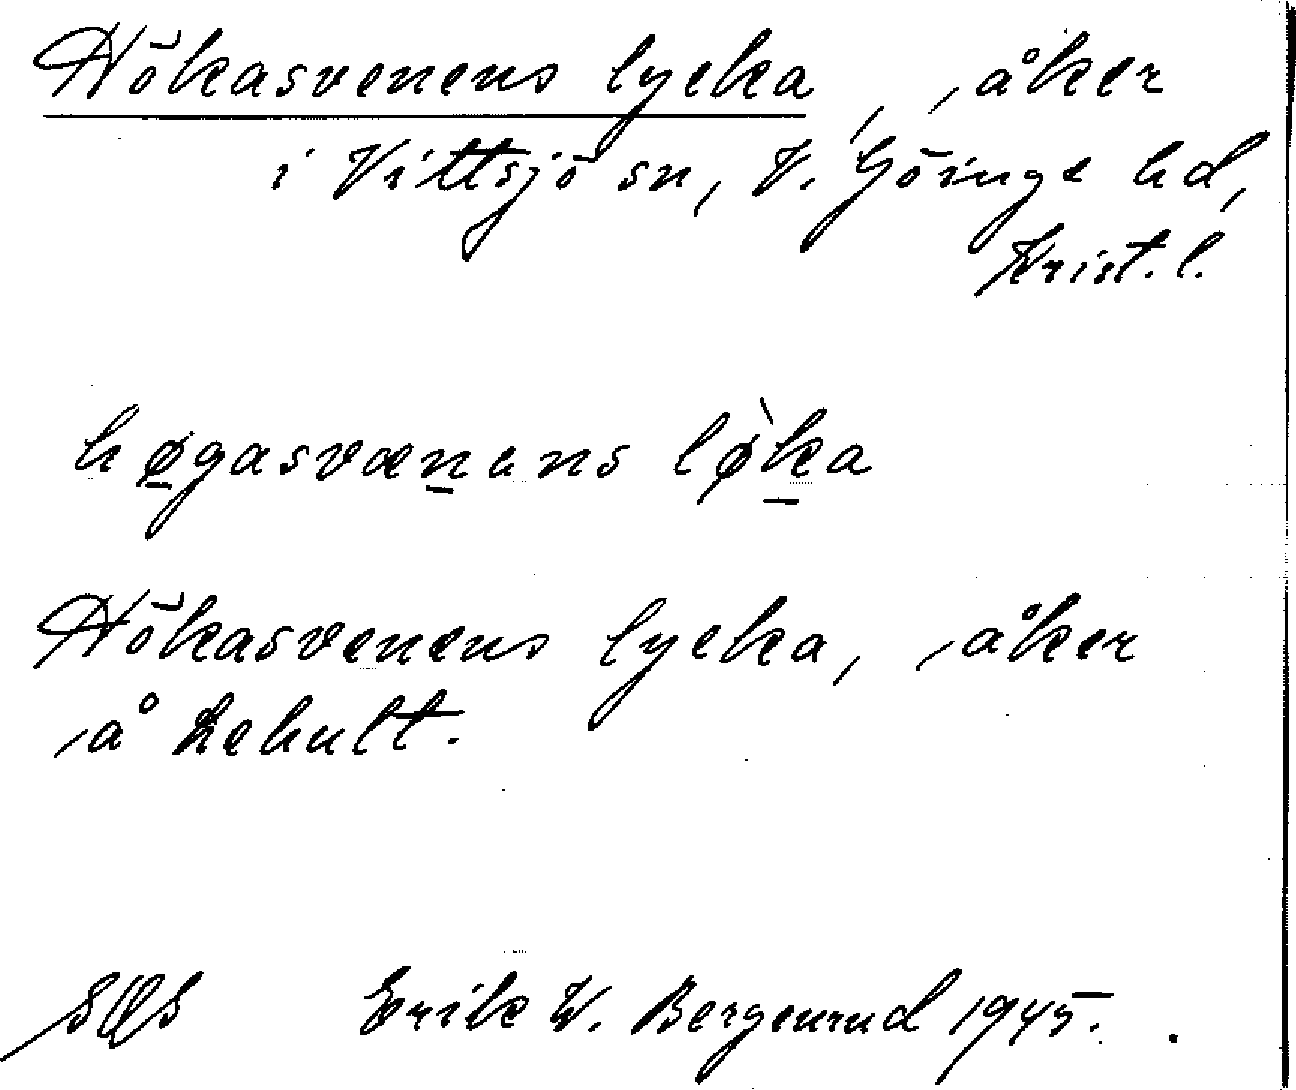 Hökasvenens lycka, åker
i Vittsjö sn, V. Göinge hd,
Krist. l.
høgasvænans løka
Hökasvenens lycka, åker
å Lehult.
Erik W. Bergenrud 1945.